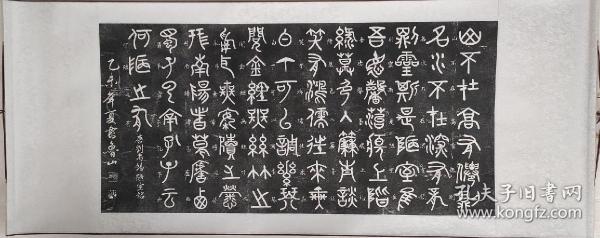 山不在高有僊則
名水不在深有龍
則靈斯是陋室惟
吾德馨苔痕上階
綠草色入簾青談
笑有鴻儒往來無
白丁可以調素琴
閱金經無絲竹之
亂耳無案牘之勞
形南陽諸葛廬西
蜀子雲亭孔子云
何陋之有 劉禹錫陋室銘
乙未年夏 魯山
孔夫子旧书网
www.kongfz.com